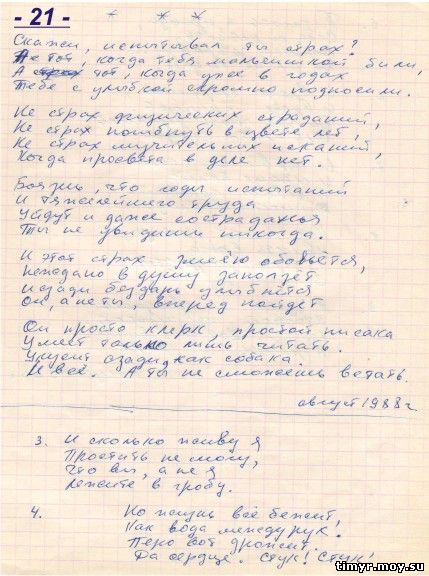 - 21 -
* * *
Скажи, испытывал ты страх?
Не тот, когда тебя мальчишкой били,
А страх тот, когда уже в годах
Тебе с улыбкой скромно подносили.
Не страх физических страданий,
Не страх погибнуть в цвете лет,
Не страх мучительных исканий,
Когда просвета в деле нет.
Боязнь, что годы испытаний
И тяжелейшего труда
Уйдут и даже состраданья
Ты не увидишь никогда.
И этот страх змеёю обовьётся,
Нежданно в душу заползёт
Изади бездарь улыбнётся
Он, а не ты, вперед пойдёт
Он просто клерк, простой писака
Умеет только лишь читать.
Укусит сзади, как собака
И всё. А ты не сможешь встать.
август 1988 г.
3. И сколько живу я
Простить не могу,
Что вы, а не я
Лежите в гробу.
4. Но жизнь всё бежит
Как вода между рук!
Перо вот дрожит.
Да сердце. Стук! Стук!
timyr.moy.su